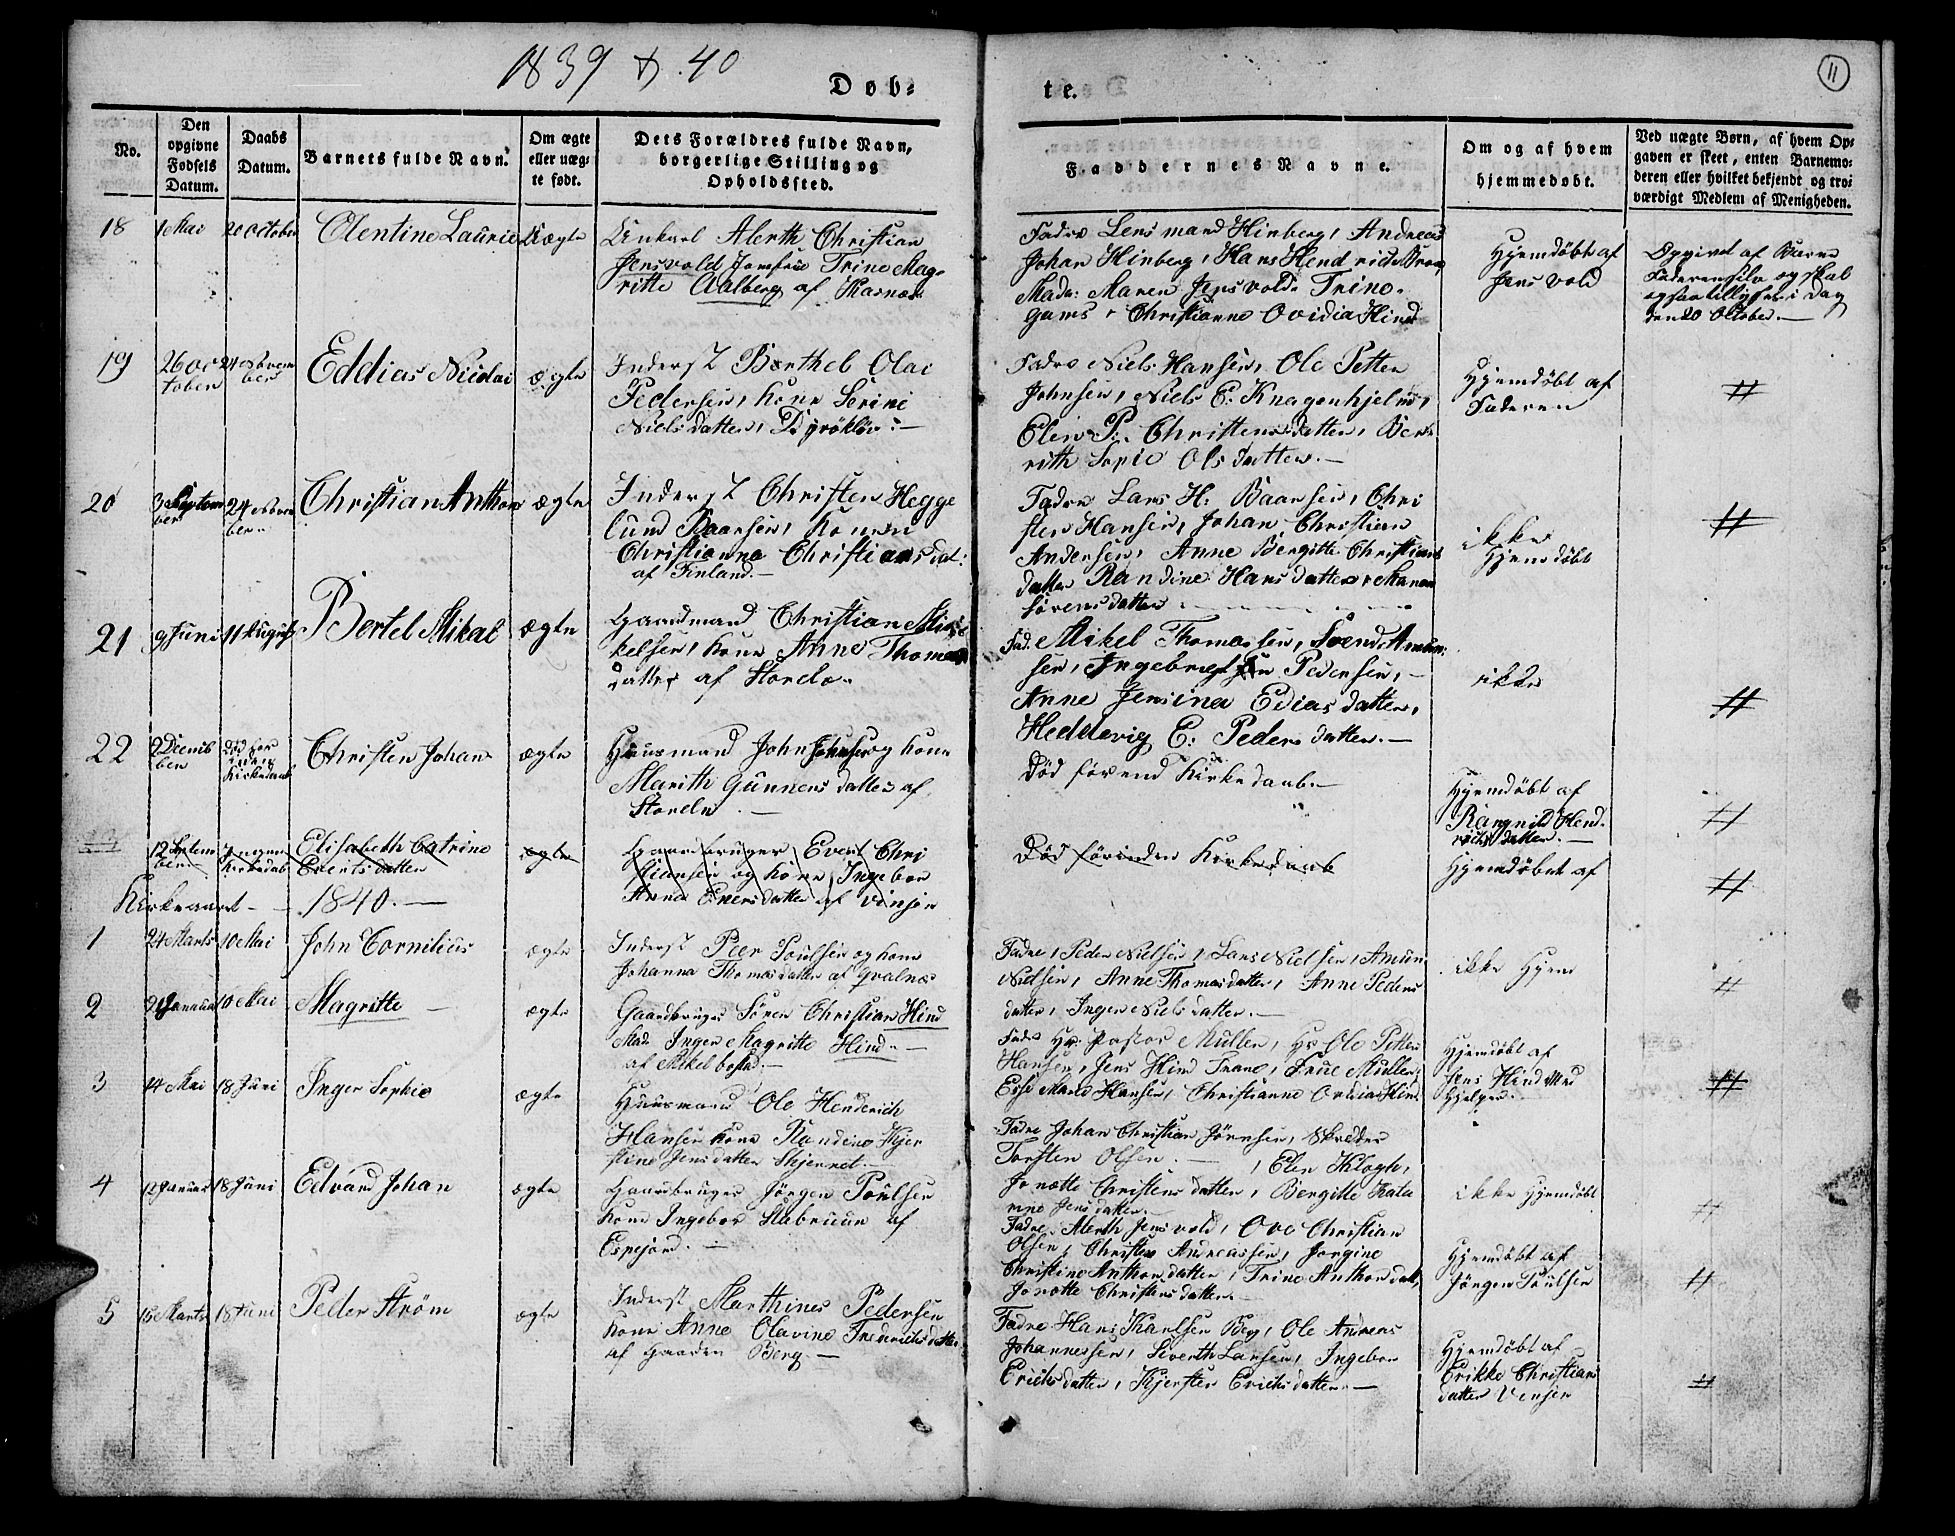 1839 & 40
11
Døb-
te.
No.
Den opgivne Fødsels Datum.
Daabs Datum.
Barnets fulde Navn.
Om ægte eller uæg-
te født.
Dets Forældres fulde Navn,
borgerlige Stilling og
Opholdssted.
Faddernes Navne.
Om og af hvem
hjemmedøbt.
Ved uægte Børn, af hvem Op-
gaven er skeet, enten Barnemo-
deren eller hvilket bekjendt og tro-
værdigt Medlem af Menigheden.
18
1 Mai
20 October
Olentine Laurie
Uægte
Unkarl Alerth Christian
Jensvold Jomfrue Trine Mag-
ritte Aalberg af
Fadre Lensmand Hinberg, Andreas
Johan Hinberg, Hans Hendrich
Mada: Maren Jensvold. Trine
Christianne Ovidia Hind
Hjemdøbt af
Jens vold
Opgivet af Barne
Faderen selv og skal
i Dag
den 20 October.
19
26 Oc
tober
24 Novem
ber
Eddias Nicolai
ægte
Inderst Barthel Olai
Pedersen, Kone Serine
Nielsdatter,
Fadre Niels Hansen, Ole Petter
Johnsen, Niels E. Knagenhjelm,
Elen P. Christensdatter, Be-
rith Sopie Olsdatter.
Hjemdøbt af
Faderen
#
20
3 Septem
ber
24 Novem
ber
Christian Anthon
ægte
Inderst Christen Hegge
lund Baarsen, Konen
Christianna Christiansdat:
af Finland.
Fadre Lars H. Baarsen, Chri
sten Hansen, Johan Christian
Andersen, Anne Bergitte Christians
datter Randine Hansdatter, Maren
Sørensdatter
ikke
Hjemdøbt
#
21
9 Juni
11 August
Bertel Mikal
ægte
Gaardmand Christian Mik
kelsen, Kone Anne Thomas
datter af Stordo.
Fad. Mikel Thomassen, Svend Amun-
sen, Ingebregt Pedersen,
Anne Jensina Ediasdatter,
Heddevig E. Pedersdatter.
ikke
#
22
2 Decemb
ber
død for
inden
Kirkedaab
Christen Johan
ægte
Huusmand John Johnsen og Kone
Marith Gunnersdatter af
Stordo
Død førend Kirkedaab
Hjemdøbt af
Rangnild Hend-
richsdatter.
#
23
12 Septem
ber
Ingen
Kirkedaab
Elisabeth Catrine
Evertsdatter
ægte
Gaardbruger Evert Chri
stiansen og Kone Ingebor
Anna Enersdatter af Vinsen
Død førinden Kirkedaab
Hjemdøbt af
#
Kirkeaaret - 1840.
1
24 Marts
10 Mai
John Cornilius
ægte
Inderst Peer Poulsen og Kone
Johanna Thomasdatter af Qvalnæs
Fadre, Peder Nielsen, Lars Nielsen, Amun
Nielsen, Anne Thomasdatter, Anne Peders
datter, Inger Nielsdatter.
ikke Hjem
#
2
Januar
10 Mai
Magritte
ægte
Gaardbruger Sören Christian Hind
Mad. Inger Magritte Hind.
af Mikelbostad.
Fadr Hr: Pastor Muller, Hr Ole Petter
Hansen, Jens Hind Trane, Frue Muller,
Else Marie Hansen, Christianne Ovidia Hind
Hjemdøbt af
Jens Hind Med
Hjelper.
#
3
14 Mai
18 Juni
Inger Sophie
ægte
Huusmand Ole Henderich
Hansen Kone Randine Kjer
stine Jensdatter Skjernet.
Fadre Johan Christian Jörnsen,
Torsten Olsen. , Elen Klogh,
Jonette Christensdatter, Bergitte Kata
rine Jensdatter.
ikke Hjemdøbt
#
4
12 Januar
18 Juni
Edvard Johan
ægte
Gaardbruger Jörgen Poulsen
Kone Ingebor Stabruun af
Espejord.
Fadre Alerth Jensvold, Ove Christian
Olsen, Christen Andreassen, Jorgine
Christine Anthondatter, Trine Anthondatt,
Jonette Christensdatter.
Hjemdøbt af
Jörgen Poulsen
#
5
15 Marts
18 Juni
Peder Strøm
ægte
Inderst Marthines Pedersen
Kone Anne Olavine Frederichsdatter
af Gaarden Berg.
Fadre Hans Karlsen Berg, Ole Andreas
Johannessen, Siverth Larsen, Ingebor
Erichsdatter, Kjersten Erichsdatter.
Hjemdøbt af
Erikke Christian
datter Vensen
#